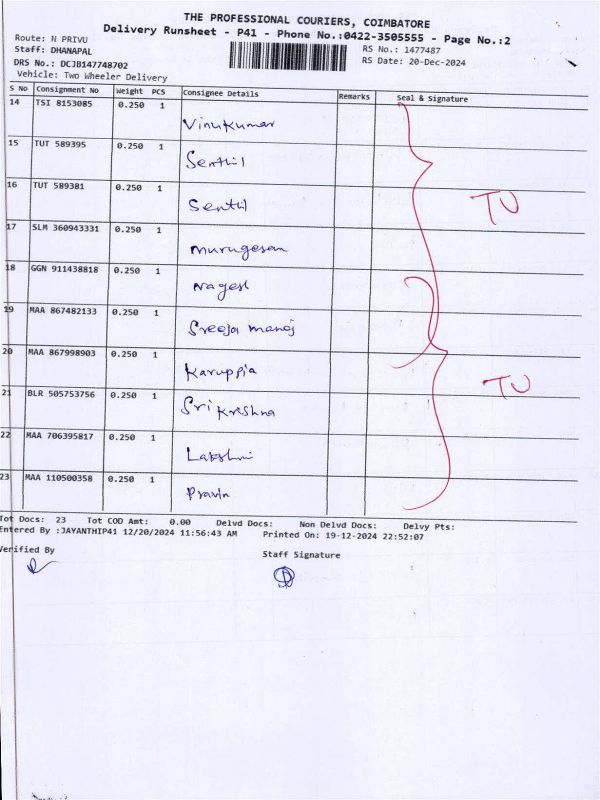 THE PROFESSIONAL COURIERS, COIMBATORE
Delivery Runsheet - P41 - Phone No.:0422-3505555 - Page No.:2
Route: N PRIVU
RS No.: 1477487
Staff: DHANAPAL
RS Date: 20-Dec-2024
DRS No.: DCJB147748702
Vehicle: Two Wheeler Delivery
S No Consignment No Weight PCS Consignee Details Remarks Seal & Signature
14 TSI 8153085 0.250 1
Vinukumar
15 TUT 589395 0.250 1
Senthil
16 TUT 589381 0.250 1
Senthil
TU
17 SLM 360943331 0.250 1
murugesan
18 GGN 911438818 0.250 1
Nagesh
19 MAA 867482133 0.250 1
Sreeja manoj
20 MAA 867998903 0.250 1
Karuppia
TU
21 BLR 505753756 0.250 1
Sri Krishna
22 MAA 706395817 0.250 1
Lakshmi
23 MAA 110500358 0.250 1
Pravin
Tot Docs: 23 Tot COD Amt: 0.00 Delvd Docs: Non Delvd Docs: Delvy Pts:
Entered By :JAYANTHIP41 12/20/2024 11:56:43 AM Printed On: 19-12-2024 22:52:07
Verified By
Staff Signature